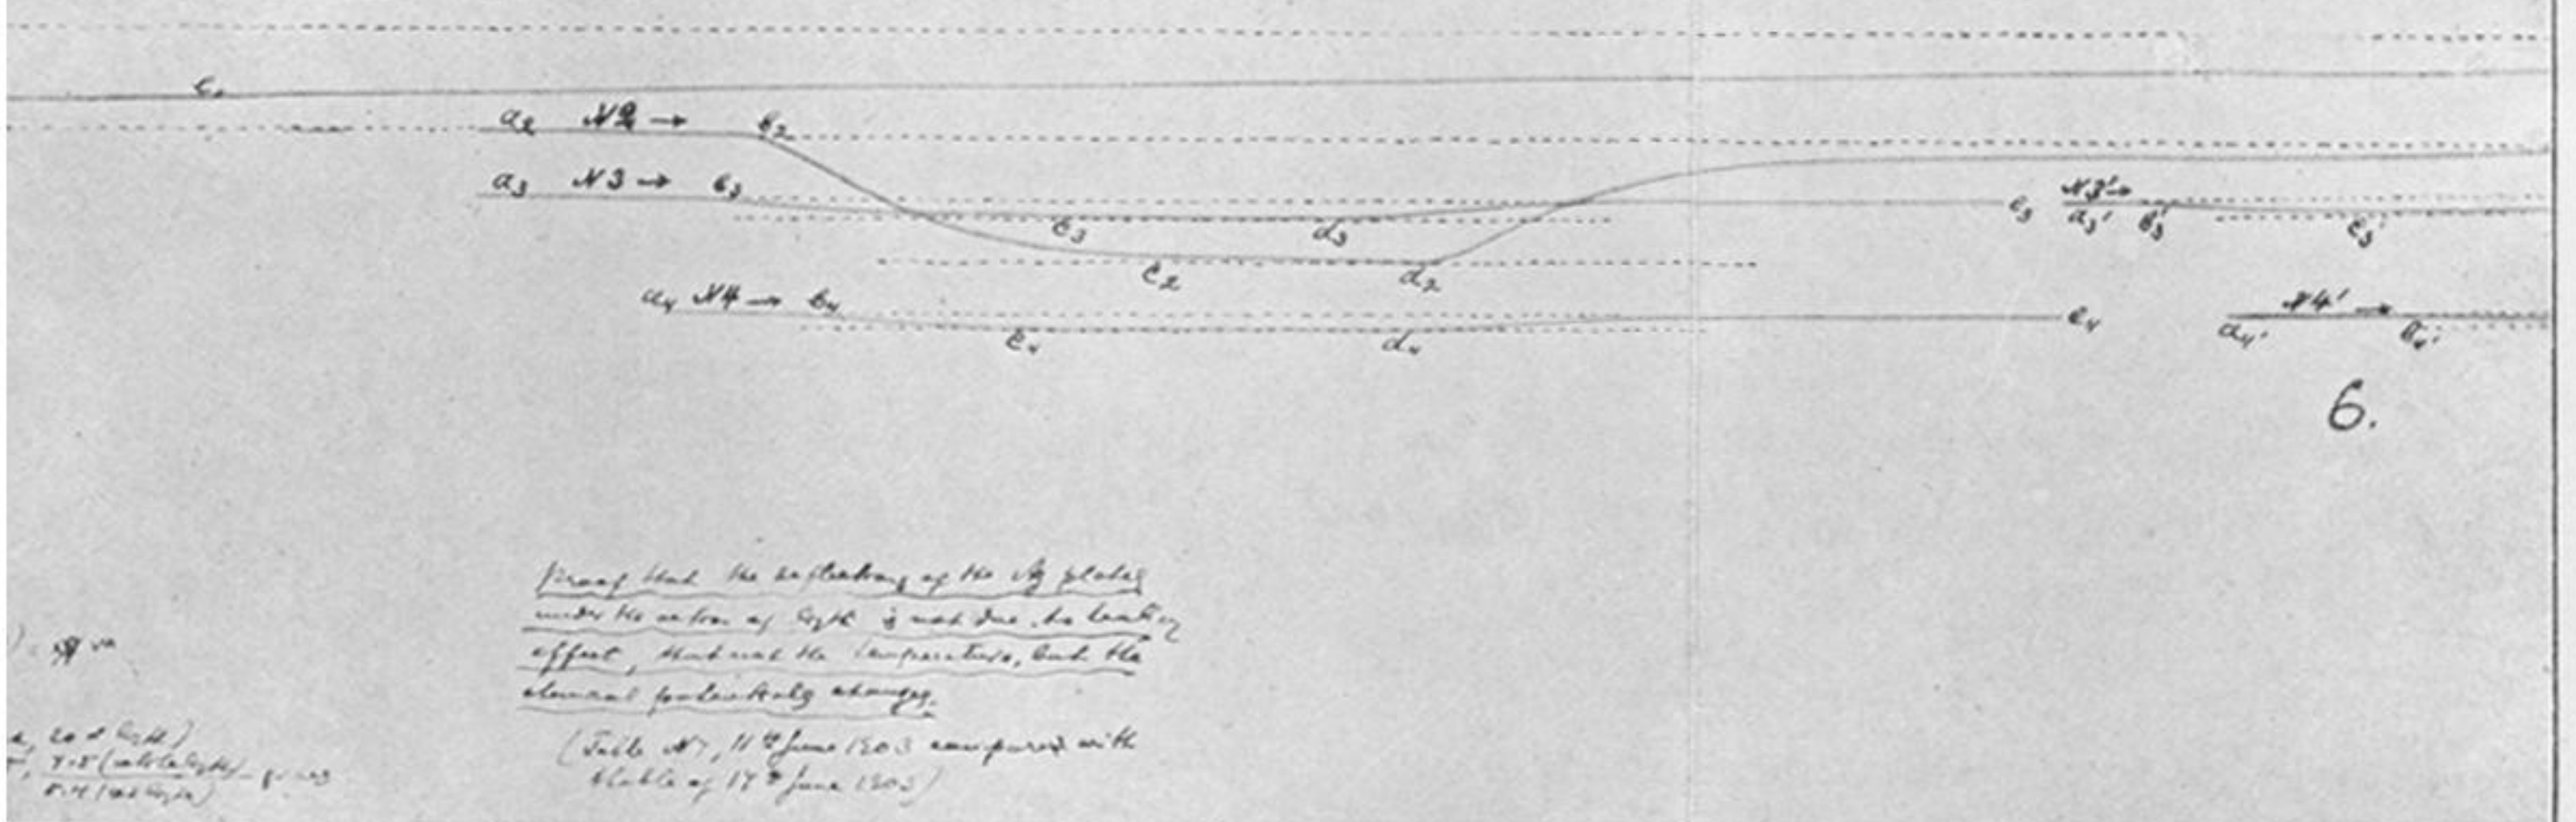 a2 N2 → b2
a3 N3 → b3
c3 d3 e3
N3' →
a3' b3' c3'
c2 d2
a4 N4 → b4
c4 d4 e4
N4' →
a4' b4'
6.
Proof that the deflection of the Ag plates
under the action of light is not due to heating
effect, that not the temperature, but the
chemical potentially changes.
(Table N7, 11th June 1903 compared with
table of 17th June 1903)
20 light)